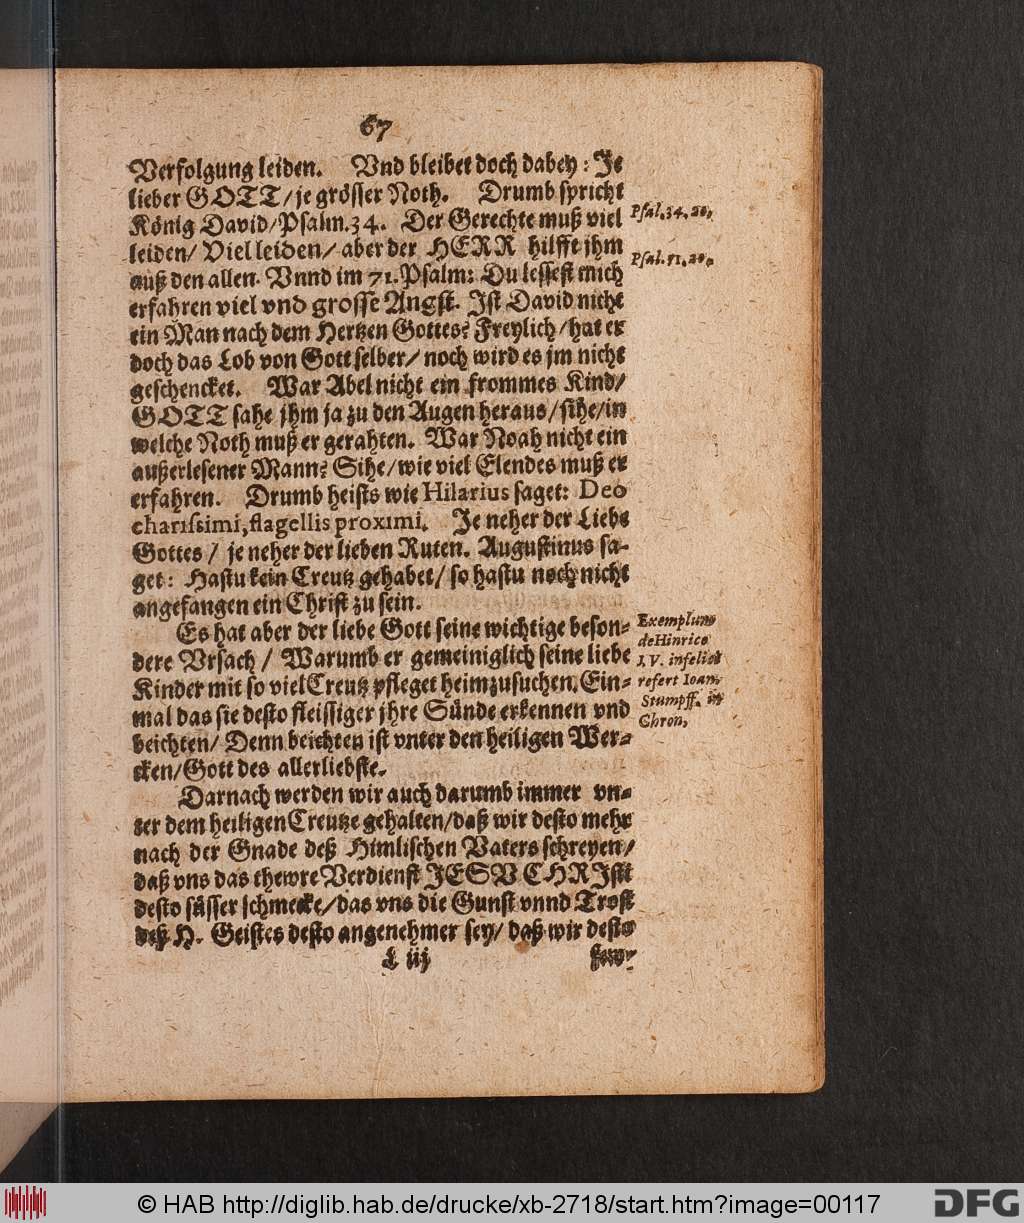 67
Verfolgung leiden. Vnd bleibet doch dabey: Je
lieber GOTT/je grösser Noth. Drumb spricht
König David/Psalm.34. Der Gerechte muß viel
leiden/ Viel leiden/ aber der HERR hilfft jhm
auß den allen. Vnnd im 71. Psalm: Du lessest mich
erfahren viel vnd grosse Angst. Ist David nicht
ein Man nach dem Hertzen Gottes? Freylich/hat er
doch das Lob von Gott selber/ noch wird es jm nicht
geschencket. War Abel nicht ein frommes Kind/
GOTT sahe jhm ja zu den Augen heraus/sihe/in
welche Noth muß er gerahten. War Noah nicht ein
außerlesener Mann? Sihe/wie viel Elendes muß er
erfahren. Drumb heists wie Hilarius saget: Deo
charissimi, flagellis proximi. Je neher der Liebe
Gottes / je neher der lieben Ruten. Augustinus sa-
get: Hastu kein Creutz gehabet/ so hastu noch nicht
angefangen ein Christ zu sein.
Es hat aber der liebe Gott seine wichtige beson-
dere Vrsach / Warumb er gemeiniglich seine liebe
Kinder mit so viel Creutz pfleget heimzusuchen. Ein-
mal das sie desto fleissiger jhre Sünde erkennen vnd
beichten/ Denn beichten ist vnter den heiligen Wer-
cken/Gott des allerliebste.
Darnach werden wir auch darumb immer vn-
ter dem heiligen Creutze gehalten/daß wir desto mehr
nach der Gnade deß Himlischen Vaters schreyen/
daß vns das thewre Verdienst JESV CHRJsti
desto süsser schmecke/das vns die Gunst vnnd Trost
deß H. Geistes desto angenehmer sey/ daß wir desto
L iij
Psal.34.20.
Psal.71.20.
Exemplum
de Hinrico
IV. infelici
refert Ioan.
Stumpff. in
Chron.
© HAB http://diglib.hab.de/drucke/xb-2718/start.htm?image=00117
DFG